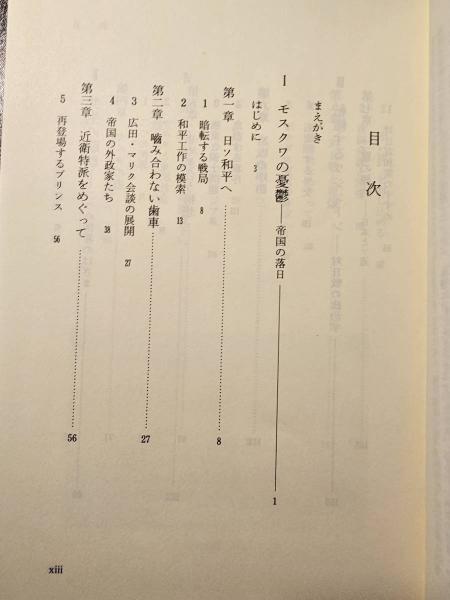 目次
まえがき
I モスクワの憂鬱──帝国の落日 1
はじめに 3
第一章 日ソ和平へ 8
1 暗転する戦局 8
2 和平工作の模索 13
第二章 嚙み合わない歯車 27
3 広田・マリク会談の展開 27
4 帝国の外政家たち 38
第三章 近衛特派をめぐって 56
5 再登場するプリンス 56
xiii